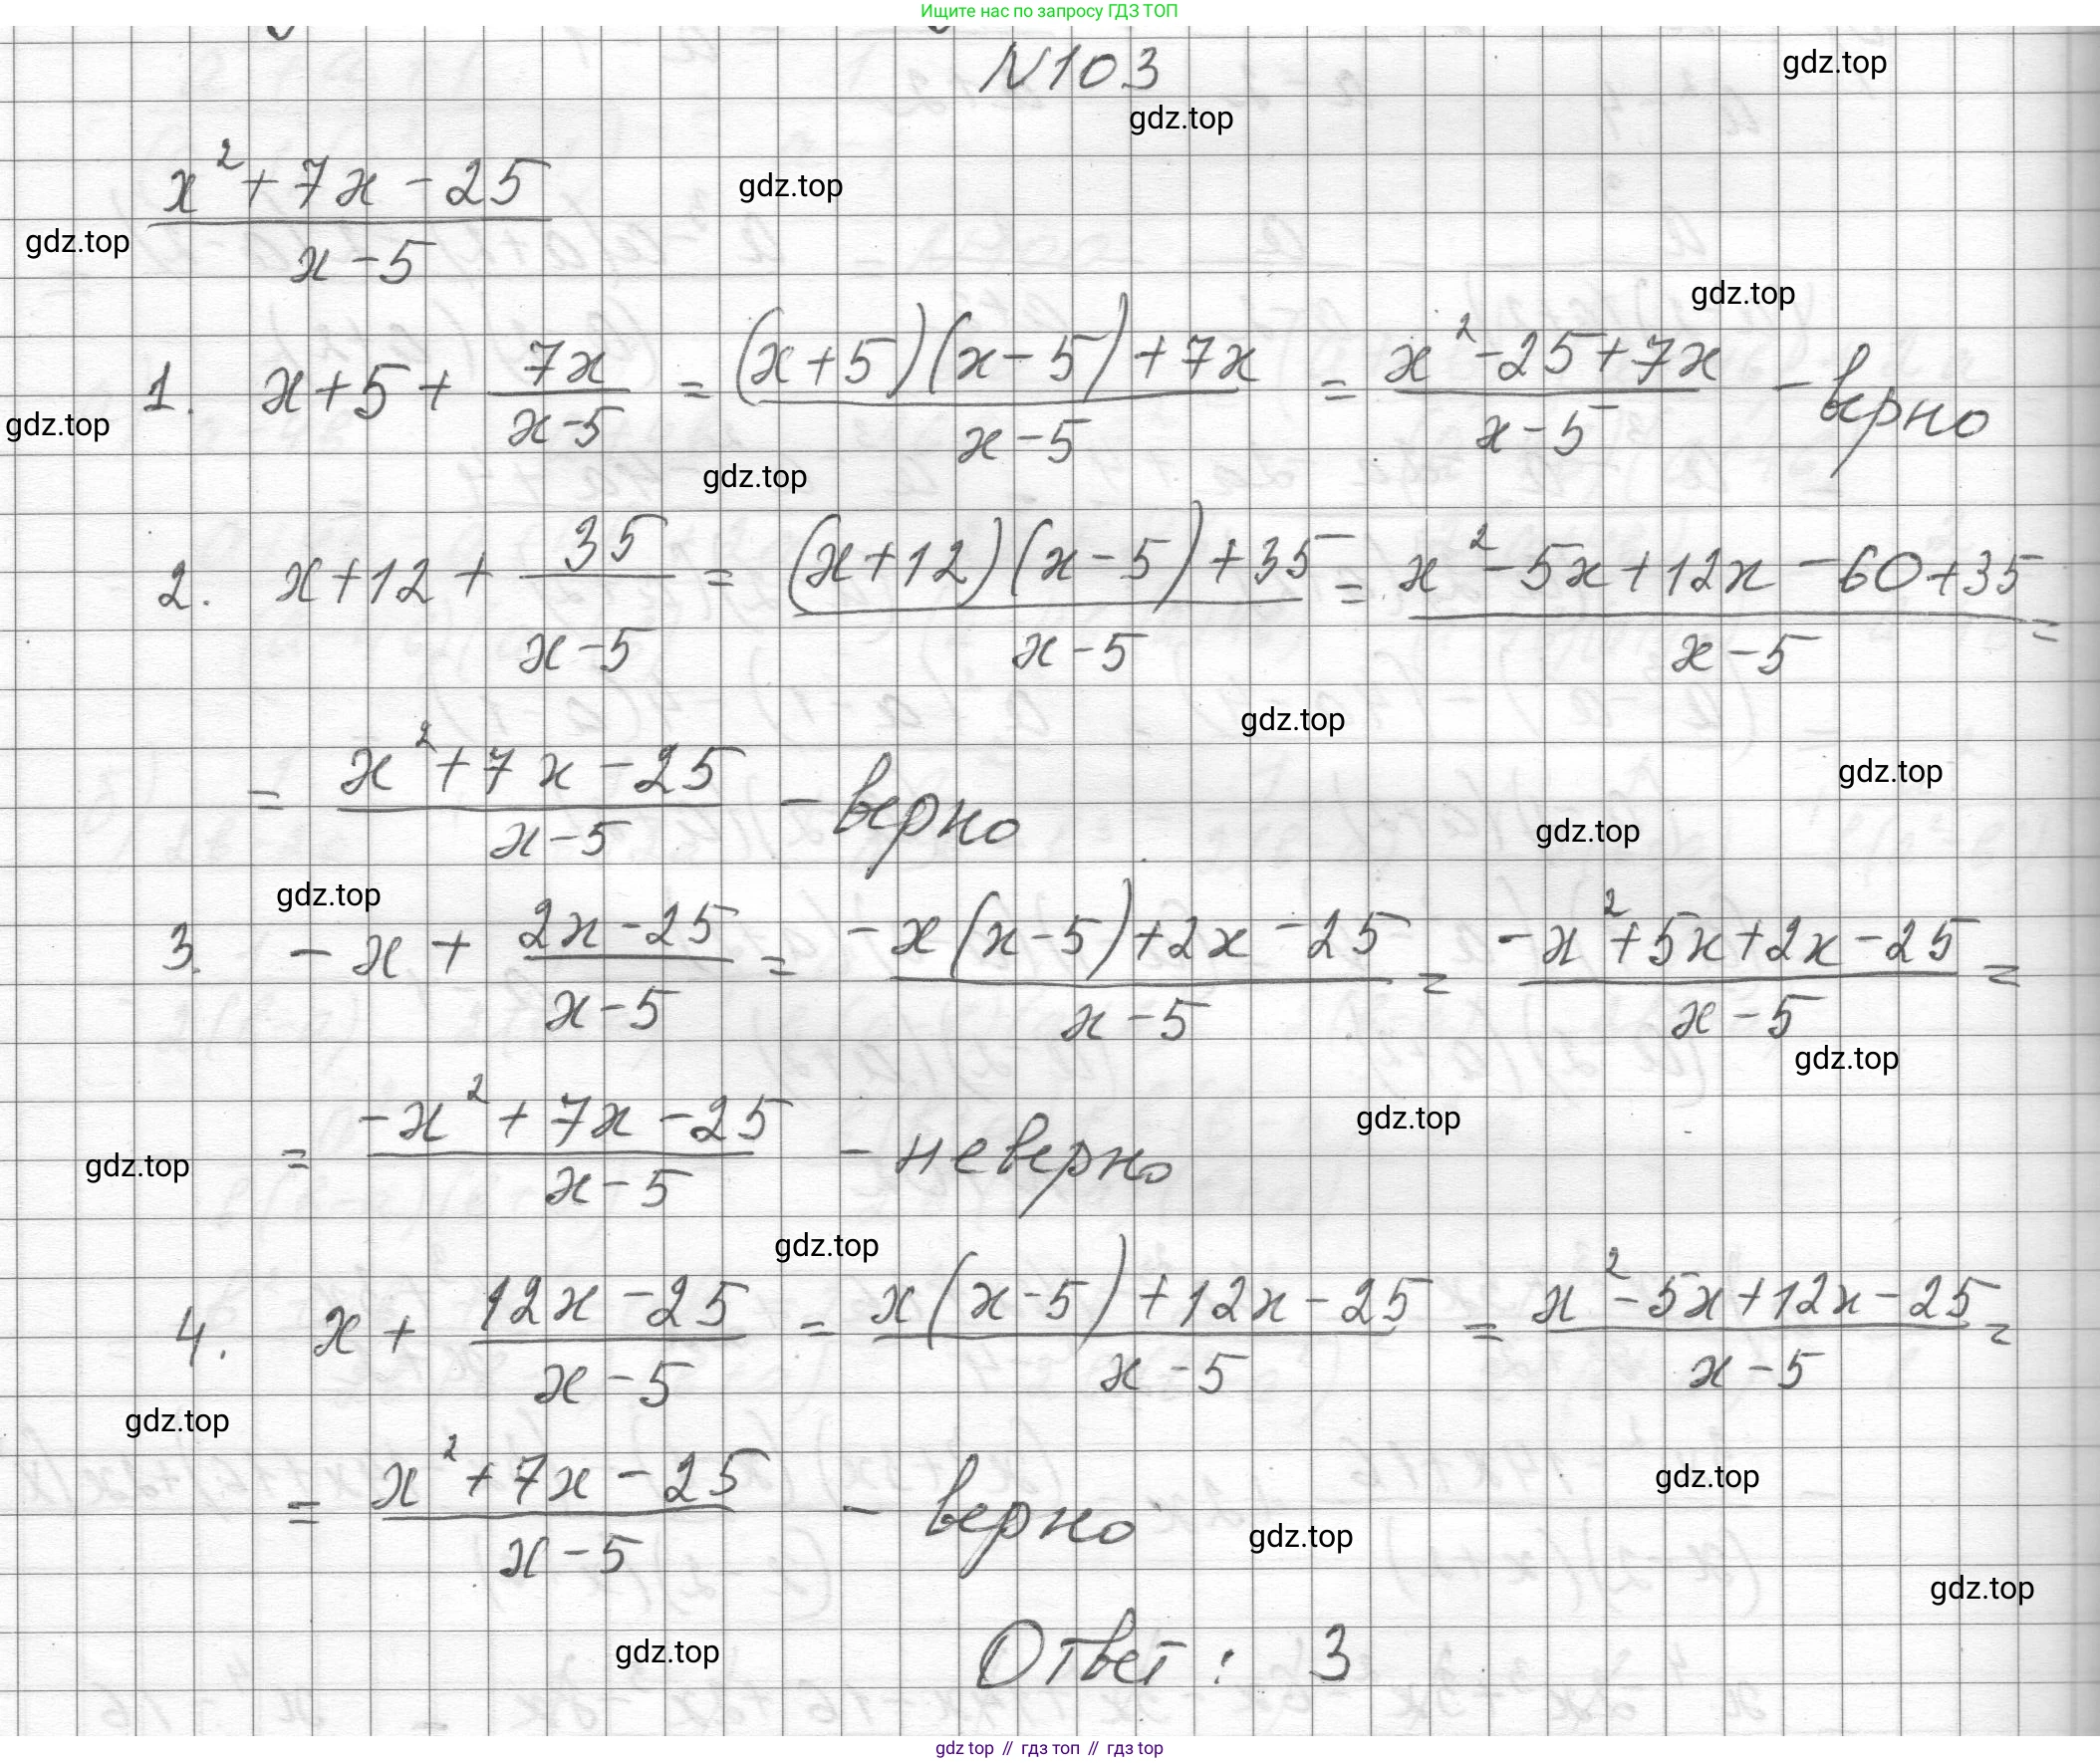 Ищите нас по запросу ГДЗ ТОП
N103
gdz.top
gdz.top
x²+7x-25
gdz.top
gdz.top
x-5
gdz.top
1. x+5+ 7x/(x-5) = ((x+5)(x-5)+7x)/(x-5) = (x²-25+7x)/(x-5) - верно
gdz.top
gdz.top
2. x+12+ 35/(x-5) = ((x+12)(x-5)+35)/(x-5) = (x²-5x+12x-60+35)/(x-5) =
gdz.top
= (x²+7x-25)/(x-5) - верно
gdz.top
gdz.top
gdz.top
3. -x+ (2x-25)/(x-5) = (-x(x-5)+2x-25)/(x-5) = (-x²+5x+2x-25)/(x-5) =
gdz.top
= (-x²+7x-25)/(x-5) - неверно
gdz.top
gdz.top
gdz.top
4. x+ (12x-25)/(x-5) = (x(x-5)+12x-25)/(x-5) = (x²-5x+12x-25)/(x-5) =
gdz.top
= (x²+7x-25)/(x-5) - верно
gdz.top
gdz.top
gdz.top
gdz.top
Ответ: 3
gdz top // гдз топ // гдз top